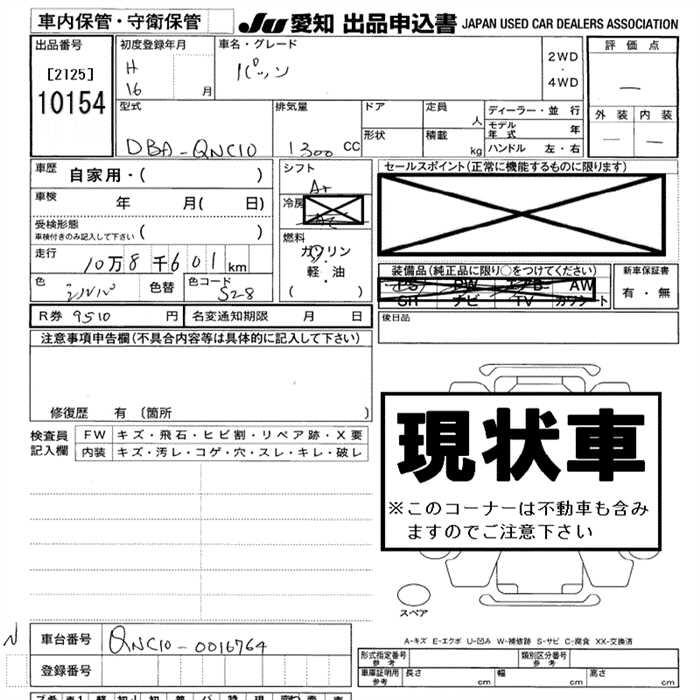 車内保管・守衛保管 JU 愛知 出品申込書 JAPAN USED CAR DEALERS ASSOCIATION
出品番号 初度登録年月 車名・グレード 評価点
[2125] H パッソ 2WD
10154 16 月 ・ 4WD
型式 排気量 ドア 定員 人 ディーラー・並行 外装 内装
モデル年式 年
DBA-QNC10 1300 CC 形状 積載 kg ハンドル 左・右
車歴 自家用・( ) シフト AT セールスポイント(正常に機能するものに限ります)
車検 年 月( 日) 冷房 AC
受検形態 ( )
車検付きのみ記入して下さい
燃料
走行 10万8千601km ガソリン
軽・油
( )
装備品(純正品に限り○をつけてください) 新車保証書
色 シルバー 色替 色コード S28 PS PW エアB AW 有・無
SR ナビ TV カワシート
R券 9510 円 名変通知期限 月 日 後日品
注意事項申告欄(不具合内容等は具体的に記入して下さい)
修復歴 有 〔箇所 〕
検査員 FW キズ・飛石・ヒビ割・リペア跡・X要
記入欄 内装 キズ・汚レ・コゲ・穴・スレ・キレ・破レ
現状車
※このコーナーは不動車も含み
ますのでご注意下さい
スペア
A-キズ E-エクボ U-凹み W-補修跡 S-サビ C-腐食 XX-交換済
車台番号 QNC10-0016764
登録番号
形式指定番号 参考 類別区分番号 参考
車庫証明用 参考 長さ cm 幅 cm 高さ cm